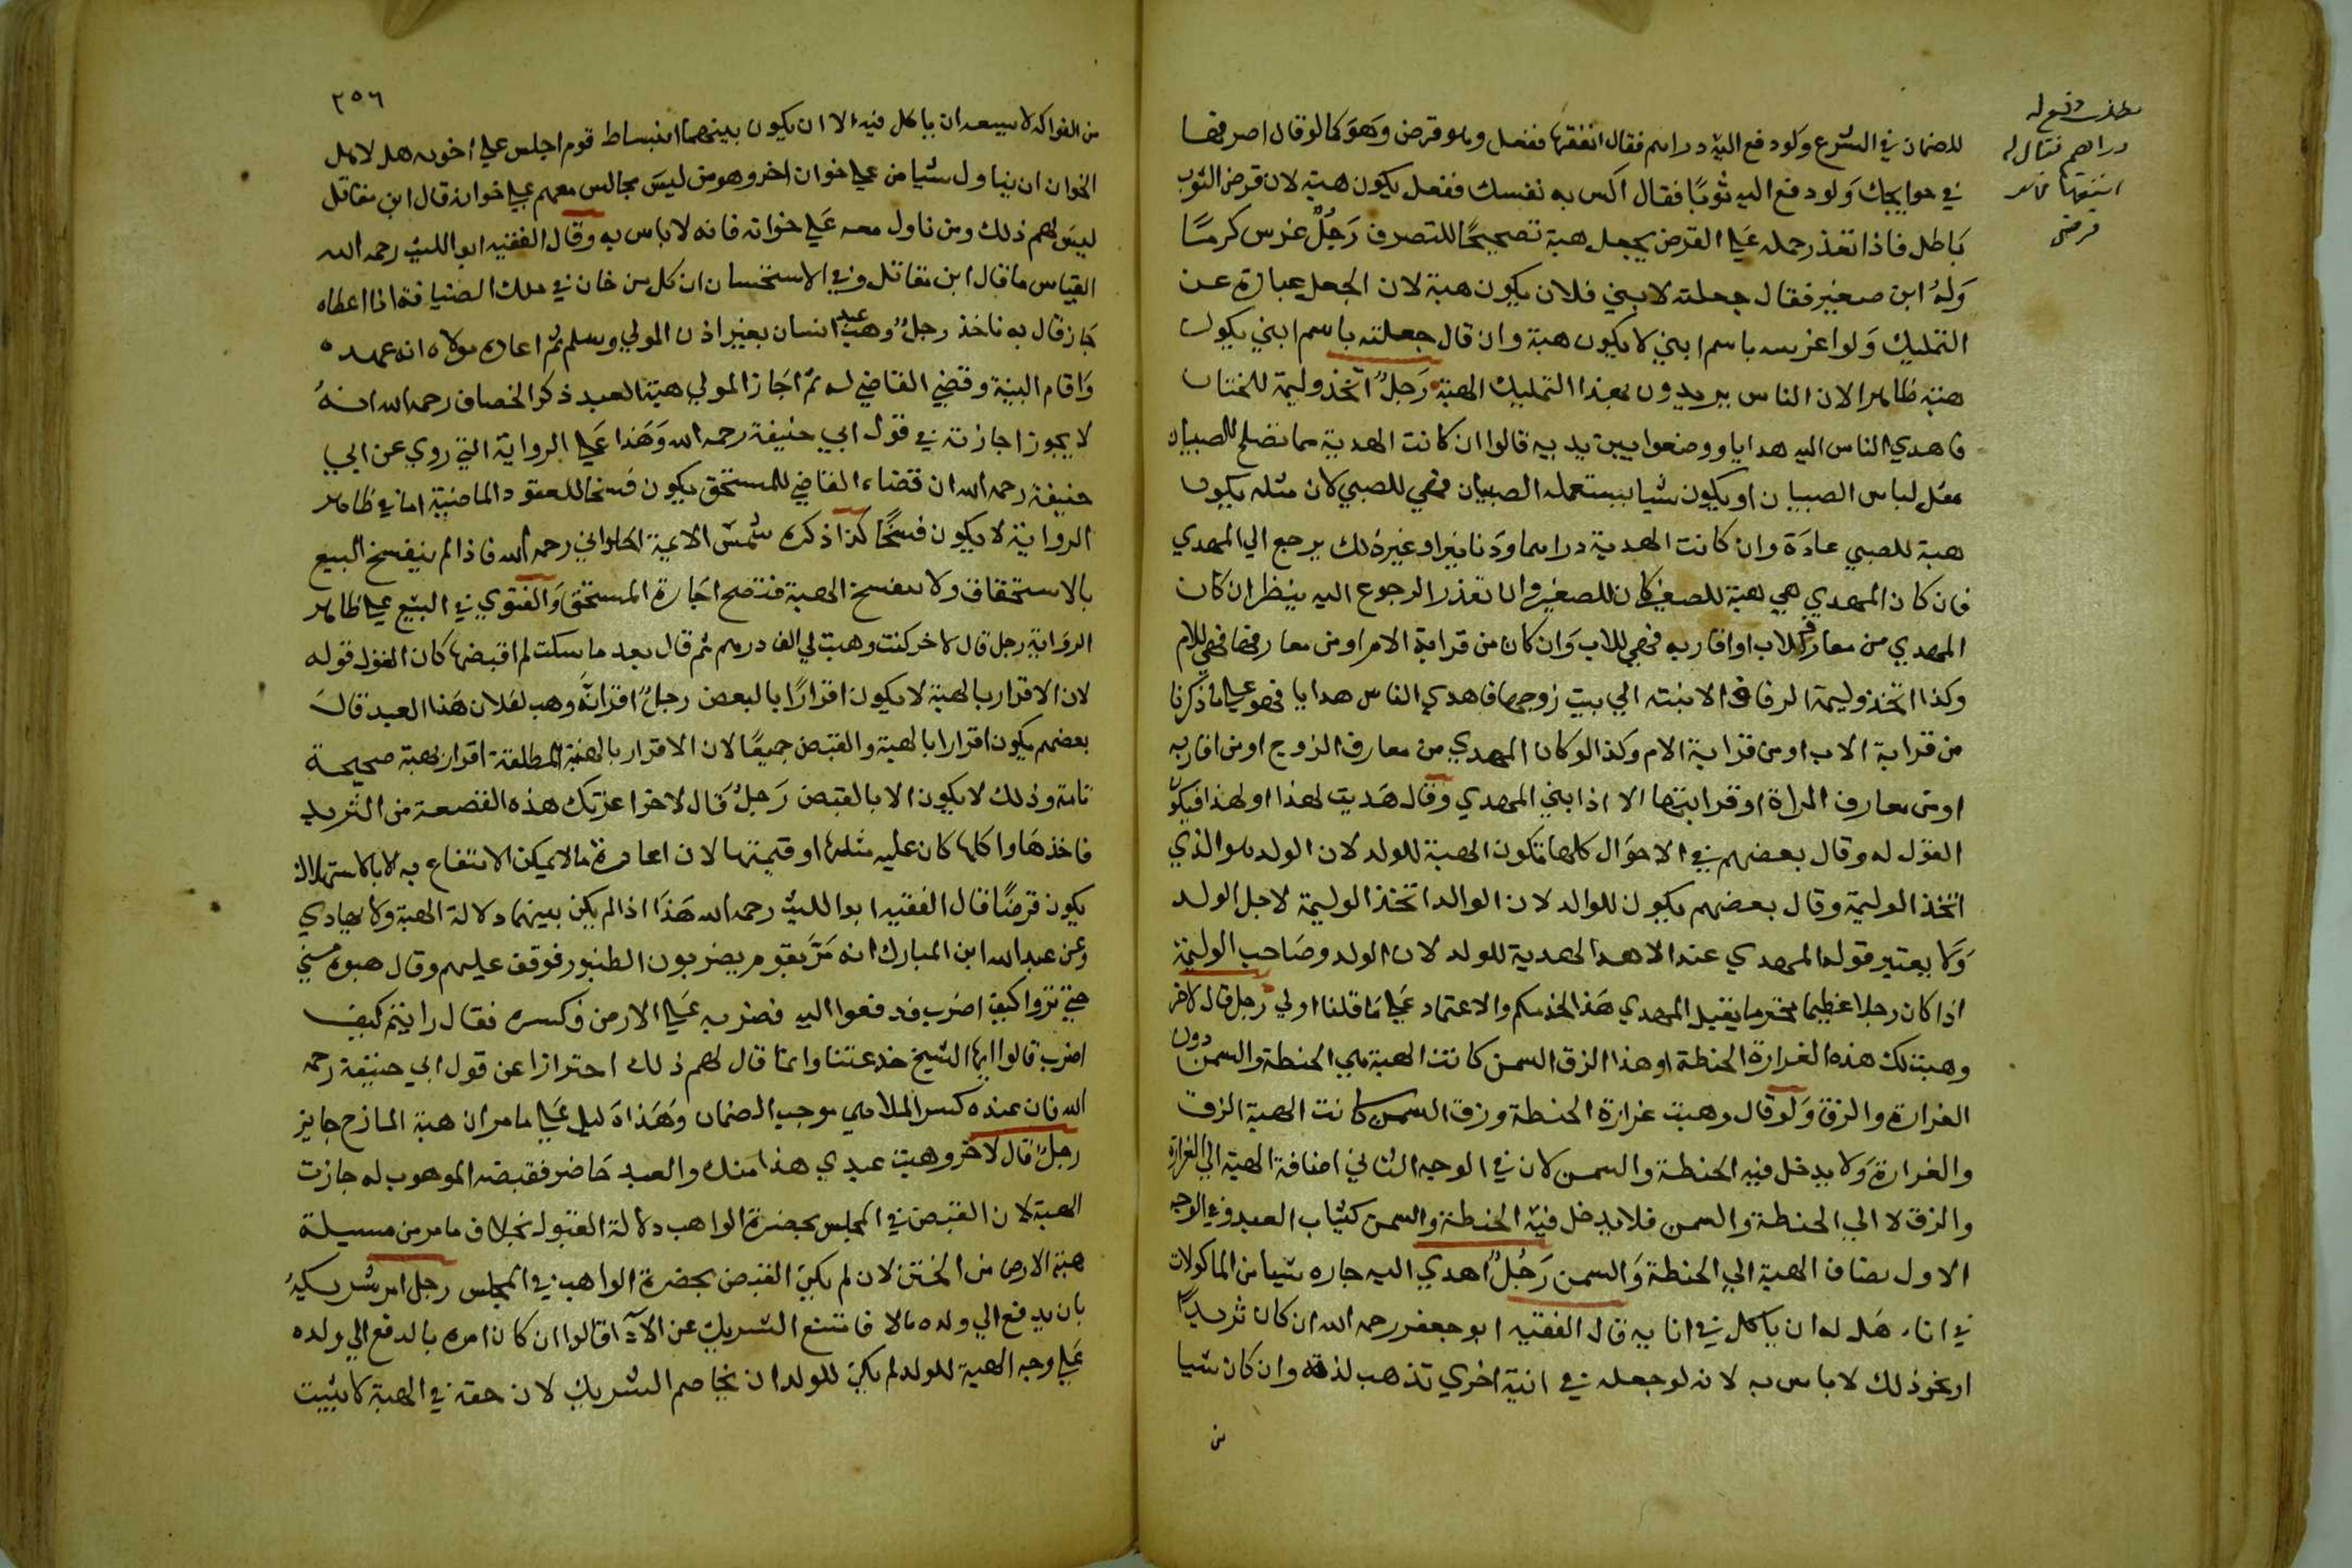 مطلب دفع له
دراهم فقال له
انفقها فهو
قرض
للضمان في الشرع ولو دفع اليه دراهم فقال انفقها ففعل وهو قرض وهو كما لو قال اصرفها
في حوايجك ولو دفع اليه ثوبا فقال اكس به نفسك ففعل يكون هبة لان قرض الثوب
باطل فاذا تعذر حمله على القرض يجعل هبة تصحيحا للتصرف رجل غرس كرما
وله ابن صغير فقال جعلته لابني فلان يكون هبة لان الجعل عبارة عن
التمليك ولو اغرسه باسم ابني لا يكون هبة وان قال جعلته باسم ابني يكون
هبة ظاهرا لان الناس يريدون بهذا التمليك الهبة رجل اتخذ وليمة للختان
فاهدي الناس اليه هدايا ووضعوا بين يديه قالوا ان كانت الهدية مما تصلح للصبيان
مثل لباس الصبيان او يكون شيا يستعمله الصبيان فهي للصبي لان مثله يكون
هبة للصبي عادة وان كانت الهدية دراهم او دنانير او غير ذلك يرجع الي المهدي
فان كان المهدي هي هبة للصغير كان للصغير وان تعذر الرجوع اليه ينظر ان كان
المهدي من معارف الاب او اقاربه فهي للاب وان كان من قرابة الام او من معارفها فهي للام
وكذا اتخذ وليمة الزفاف لابنته الي بيت زوجها فاهدي الناس هدايا فهو على ما ذكرنا
من قرابة الاب او من قرابة الام وكذا لو كان المهدي من معارف الزوج او من اقاربه
او من معارف المراة او قرابتها الا اذا بني المهدي وقال هديت لهذا او لهذا فيكون
القول له وقال بعضهم في الاحوال كلها تكون الهبة للولد لان الولد هو الذي
اتخذ الوليمة وقال بعضهم يكون للوالد لان الوالد اتخذ الوليمة لاجل الولد
ولا يعتبر قوله المهدي عند الاهدا الهدية للولد لان الولد وصاحب الوليمة
اذا كان رجلا عظيما محترما يقيل المهدي هذا لخدمكم والاعتماد على ما قلنا اولي رجل قال لاخر
وهبت لك هذه الغرارة الحنطة او هذا الزق السمن كانت الهبة هي الحنطة والسمن دون
الغرارة والزق ولو قال وهبت غرارة الحنطة وزق السمن كانت الهبة الزق
والغرارة ولا يدخل فيه الحنطة والسمن لان في الوجه الثاني اضافة الهبة الي الغرارة
والزق لا الي الحنطة والسمن فلا يدخل فيه الحنطة والسمن كثياب العبد وفي الوجه
الاول يضاف الهبة الي الحنطة والسمن رجل اهدي اليه جاره شيا من الماكولات
في اناء هل له ان ياكل في انايه قال الفقيه ابو جعفر رحمه الله ان كان ثريدا
او نحو ذلك لا باس به لانه لو جعله في انية اخري تذهب لذته وان كان شيا
من
٢٥٦
من الفواكه لا يسعه ان ياكل فيه الا ان يكون بينهما انبساط قوم اجلس على اخونه هل لاهل
الخوان ان يناول شيا من على خوان اخر وهو من ليس مجالس معهم على خوانه قال ابن مقاتل
ليس لهم ذلك ومن ناول معه على خوانه فانه لا باس به وقال الفقيه ابو الليث رحمه الله
القياس ما قال ابن مقاتل وفي الاستحسان ان كل من خان في ملك الضيافة اذا اعطاه
جاز قال به ناخذ رجل وهب عبد انسان بغير اذن المولي وسلم ثم اعاده مولاه انه عبده
واقام البينة وقضي القاضي له ثم اجاز المولي هبة العبد ذكر الخصاف رحمه الله انه
لا يجوز اجازته في قول ابي حنيفة رحمه الله وهذا على الرواية التي روي عن ابي
حنيفة رحمه الله ان قضاء القاضي للمستحق يكون فسخا للعقود الماضية اما في ظاهر
الرواية لا يكون فسخا كذا ذكره شمس الايمة الحلواني رحمه الله فاذا لم ينفسخ البيع
بالاستحقاق ولا ينفسخ الهبة فتصح اجازة المستحق والفتوي في البيع على ظاهر
الرواية رجل قال لاخر كنت وهبت لي الف درهم ثم قال بعد ما سكت لم اقبضها كان القول قوله
لان الاقرار بالهبة لا يكون اقرارا بالبعض رجل اقر انه وهب لفلان هذا العبد قال
بعضهم يكون اقرارا بالهبة والقبض جميعا لان الاقرار بالهبة المطلقة اقرار بهبة صحيحة
تامة وذلك لا يكون الا بالقبض رجل قال لاخر اعرتك هذه القصعة من الثريد
فاخذها واكلها كان عليه مثلها او قيمتها لان اعارة ما لا يمكن الانتفاع به الا بالاستهلاك
يكون قرضا قال الفقيه ابو الليث رحمه الله هذا اذا لم يكن بينهما دلالة الهبة ولا يهادي
وعن عبد الله ابن المبارك انه مر بقوم يضربون الطنبور فوقف عليهم وقال هبوه مني
حتي تروا كيف اضرب فدفعوا اليه فضربه على الارض وكسره فقال رايتم كيف
اضرب قالوا ايها الشيخ خدعتنا وانما قال لهم ذلك احترازا عن قول ابي حنيفة رحمه
الله فان عنده كسر الملاهي موجب الضمان وهذا دليل على ما مر ان هبة المازح جايز
رجل قال لاخر وهبت عبدي هذا منك والعبد حاضر فقبضه الموهوب له جازت
الهبة لان القبض في المجلس بحضرة الواهب دلالة القبول بخلاف ما مر من مسيلة
هبة الارض من الختن لان لم يكن القبض بحضرة الواهب في المجلس رجل امر شريكه
بان يدفع الي ولده مالا فامتنع الشريك عن الادا قالوا ان كان امره بالدفع الي ولده
على وجه الهبة للولد لم يكن للولد ان يخاصم الشريك لان حقه في الهبة لا يثبت